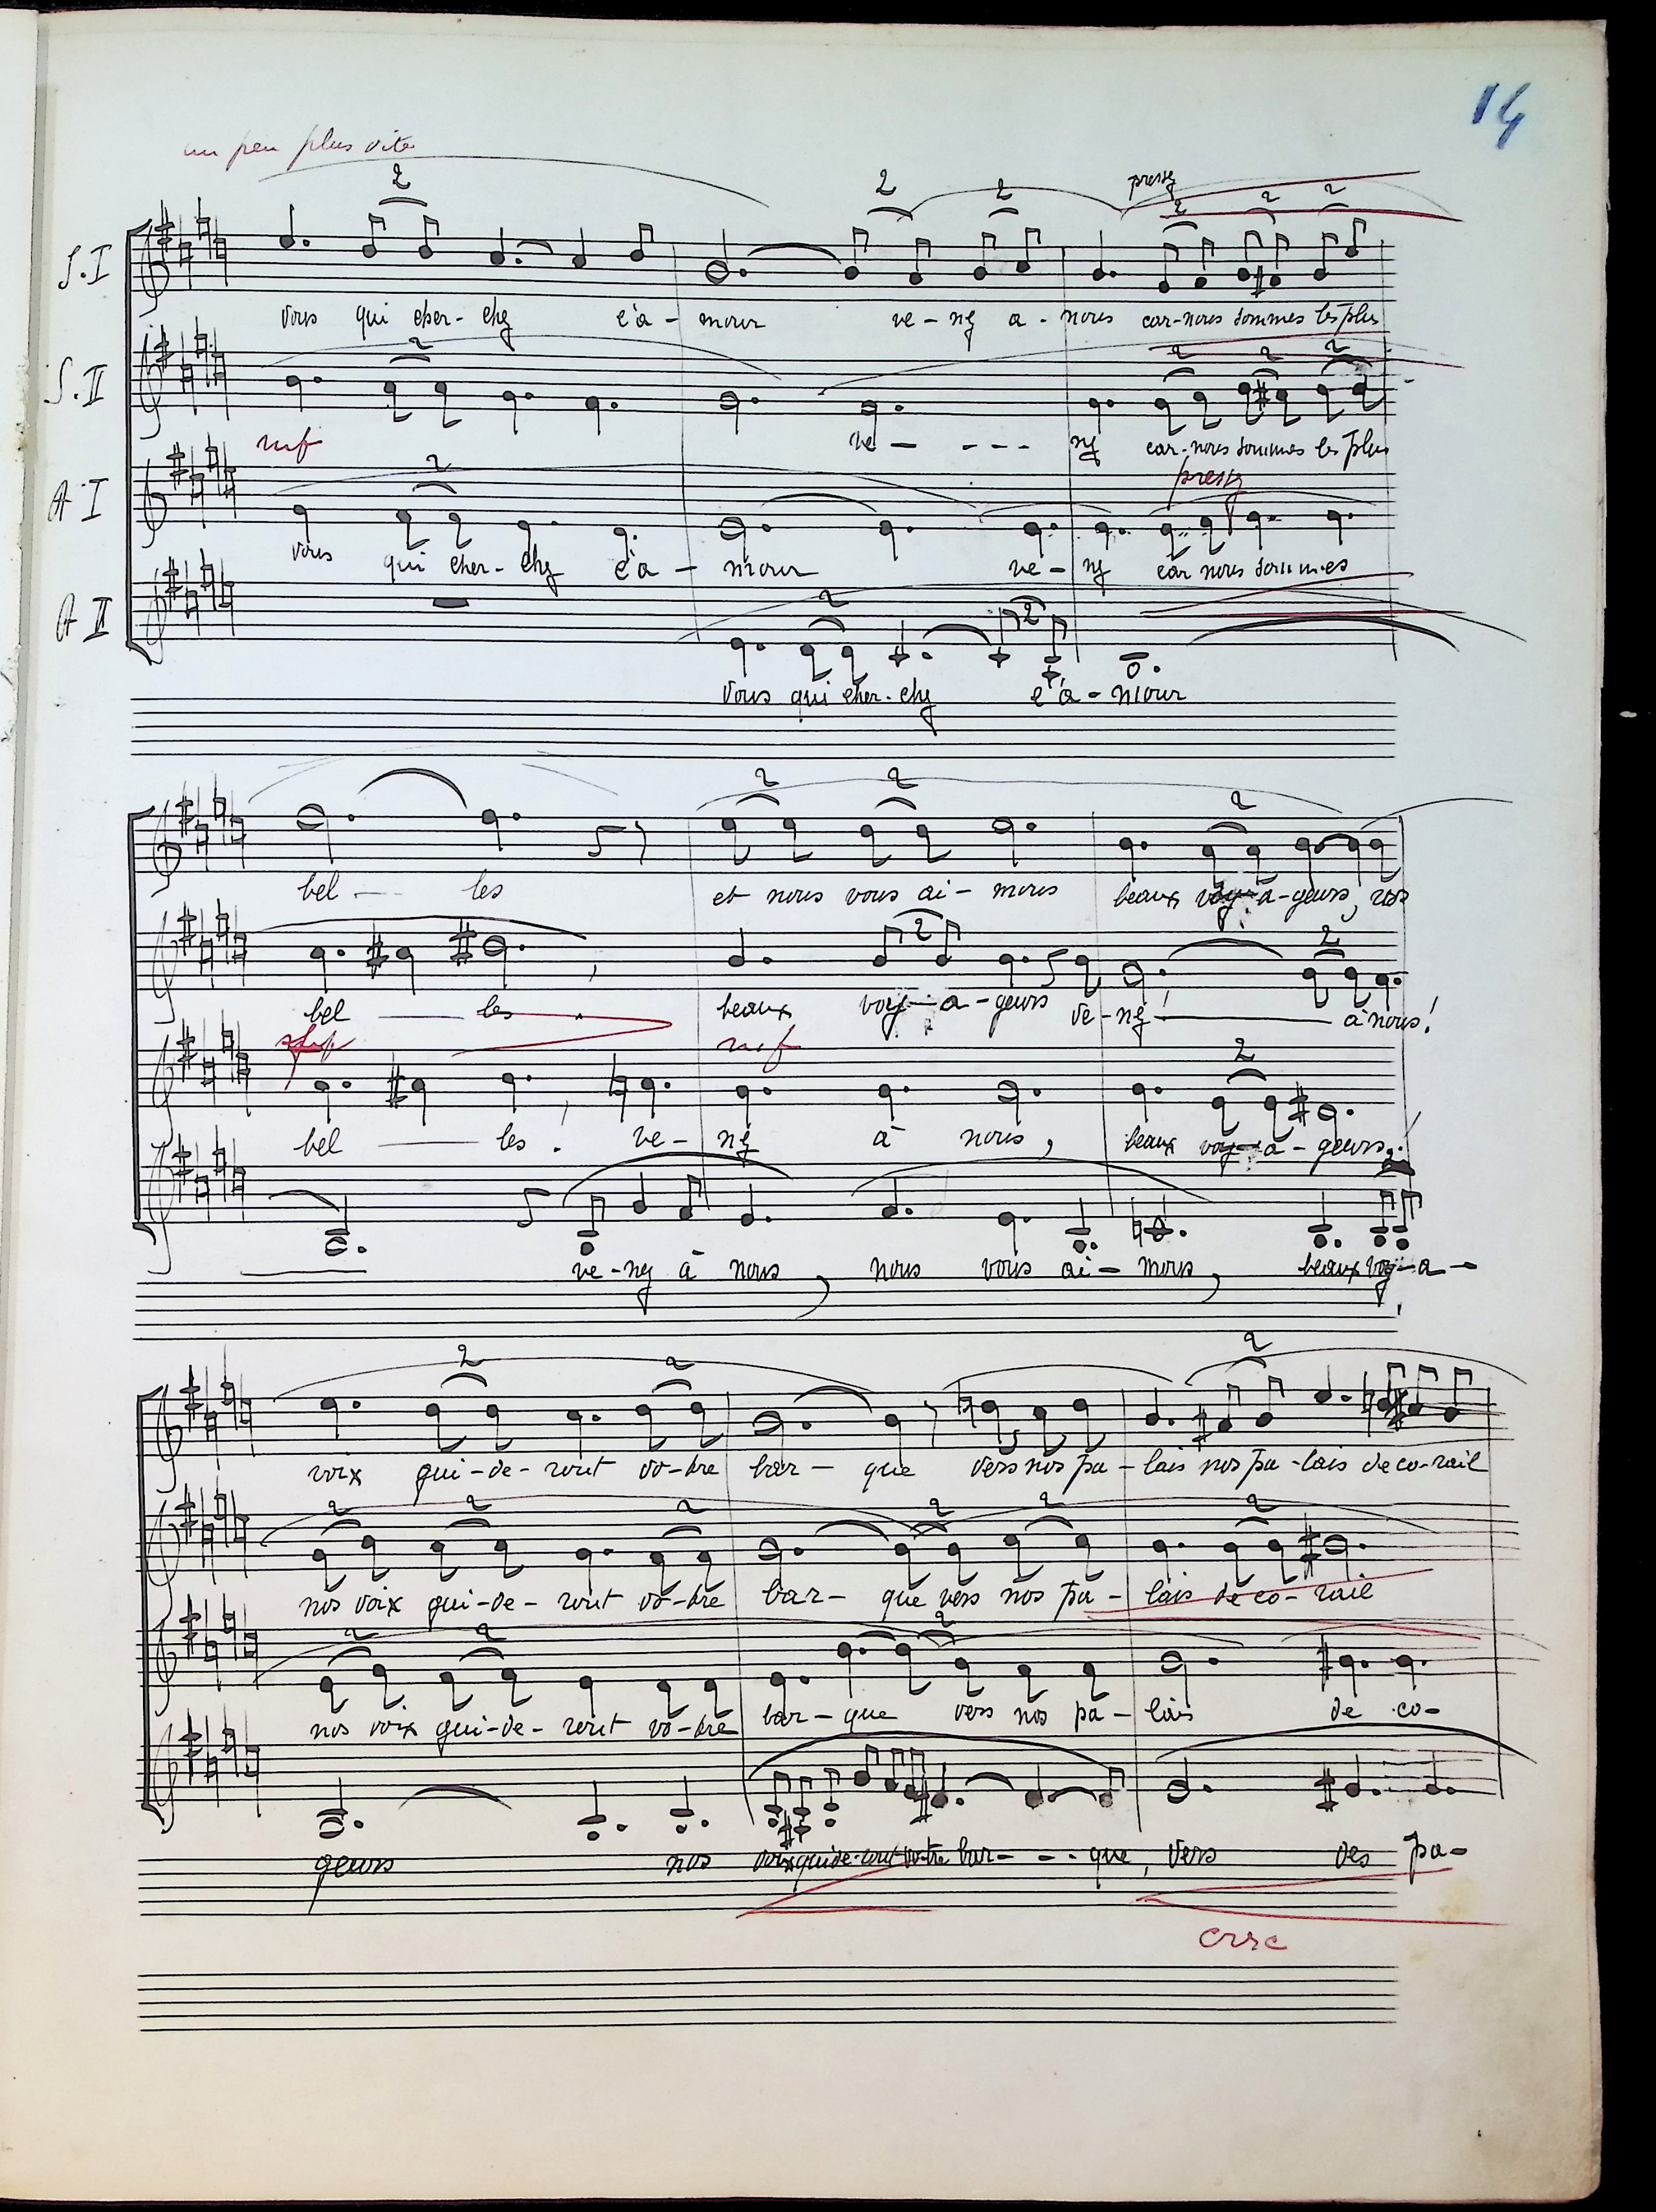 14
un peu plus vite
2 2 2 pressez 2 2 2
S.I
vous qui cher-chez l'a-mour ve-nez a-nous car-nous sommes les plus
2 2 2 2
S.II
mf ve- --- nez car-nous sommes les plus
pressez
2
A I
vous qui cher-chez l'a-mour ve-nez car nous sommes
2 2
A II
vous qui cher-chez l'a-mour
2 2 2
bel-les et nous vous ai-mons beaux voy-a-geurs, nos
2 2
bel-les beaux voy-a-geurs ve-nez! à nous!
mf
2
bel-les. ve-nez à nous, beaux voy-a-geurs,
ve-nez à nous, nous vous ai-mons, beaux voy-a-
2 2 2
voix gui-de-ront vo-tre bar-que vers nos pa-lais nos pa-lais de co-rail
2 2 2 2 2 2
nos voix gui-de-ront vo-tre bar-que vers nos pa-lais de co-rail
2 2 2
nos voix gui-de-ront vo-tre bar-que vers nos pa-lais de co-
geurs nos voix gui-de-ront votre bar---que, vers des pa-
cresc